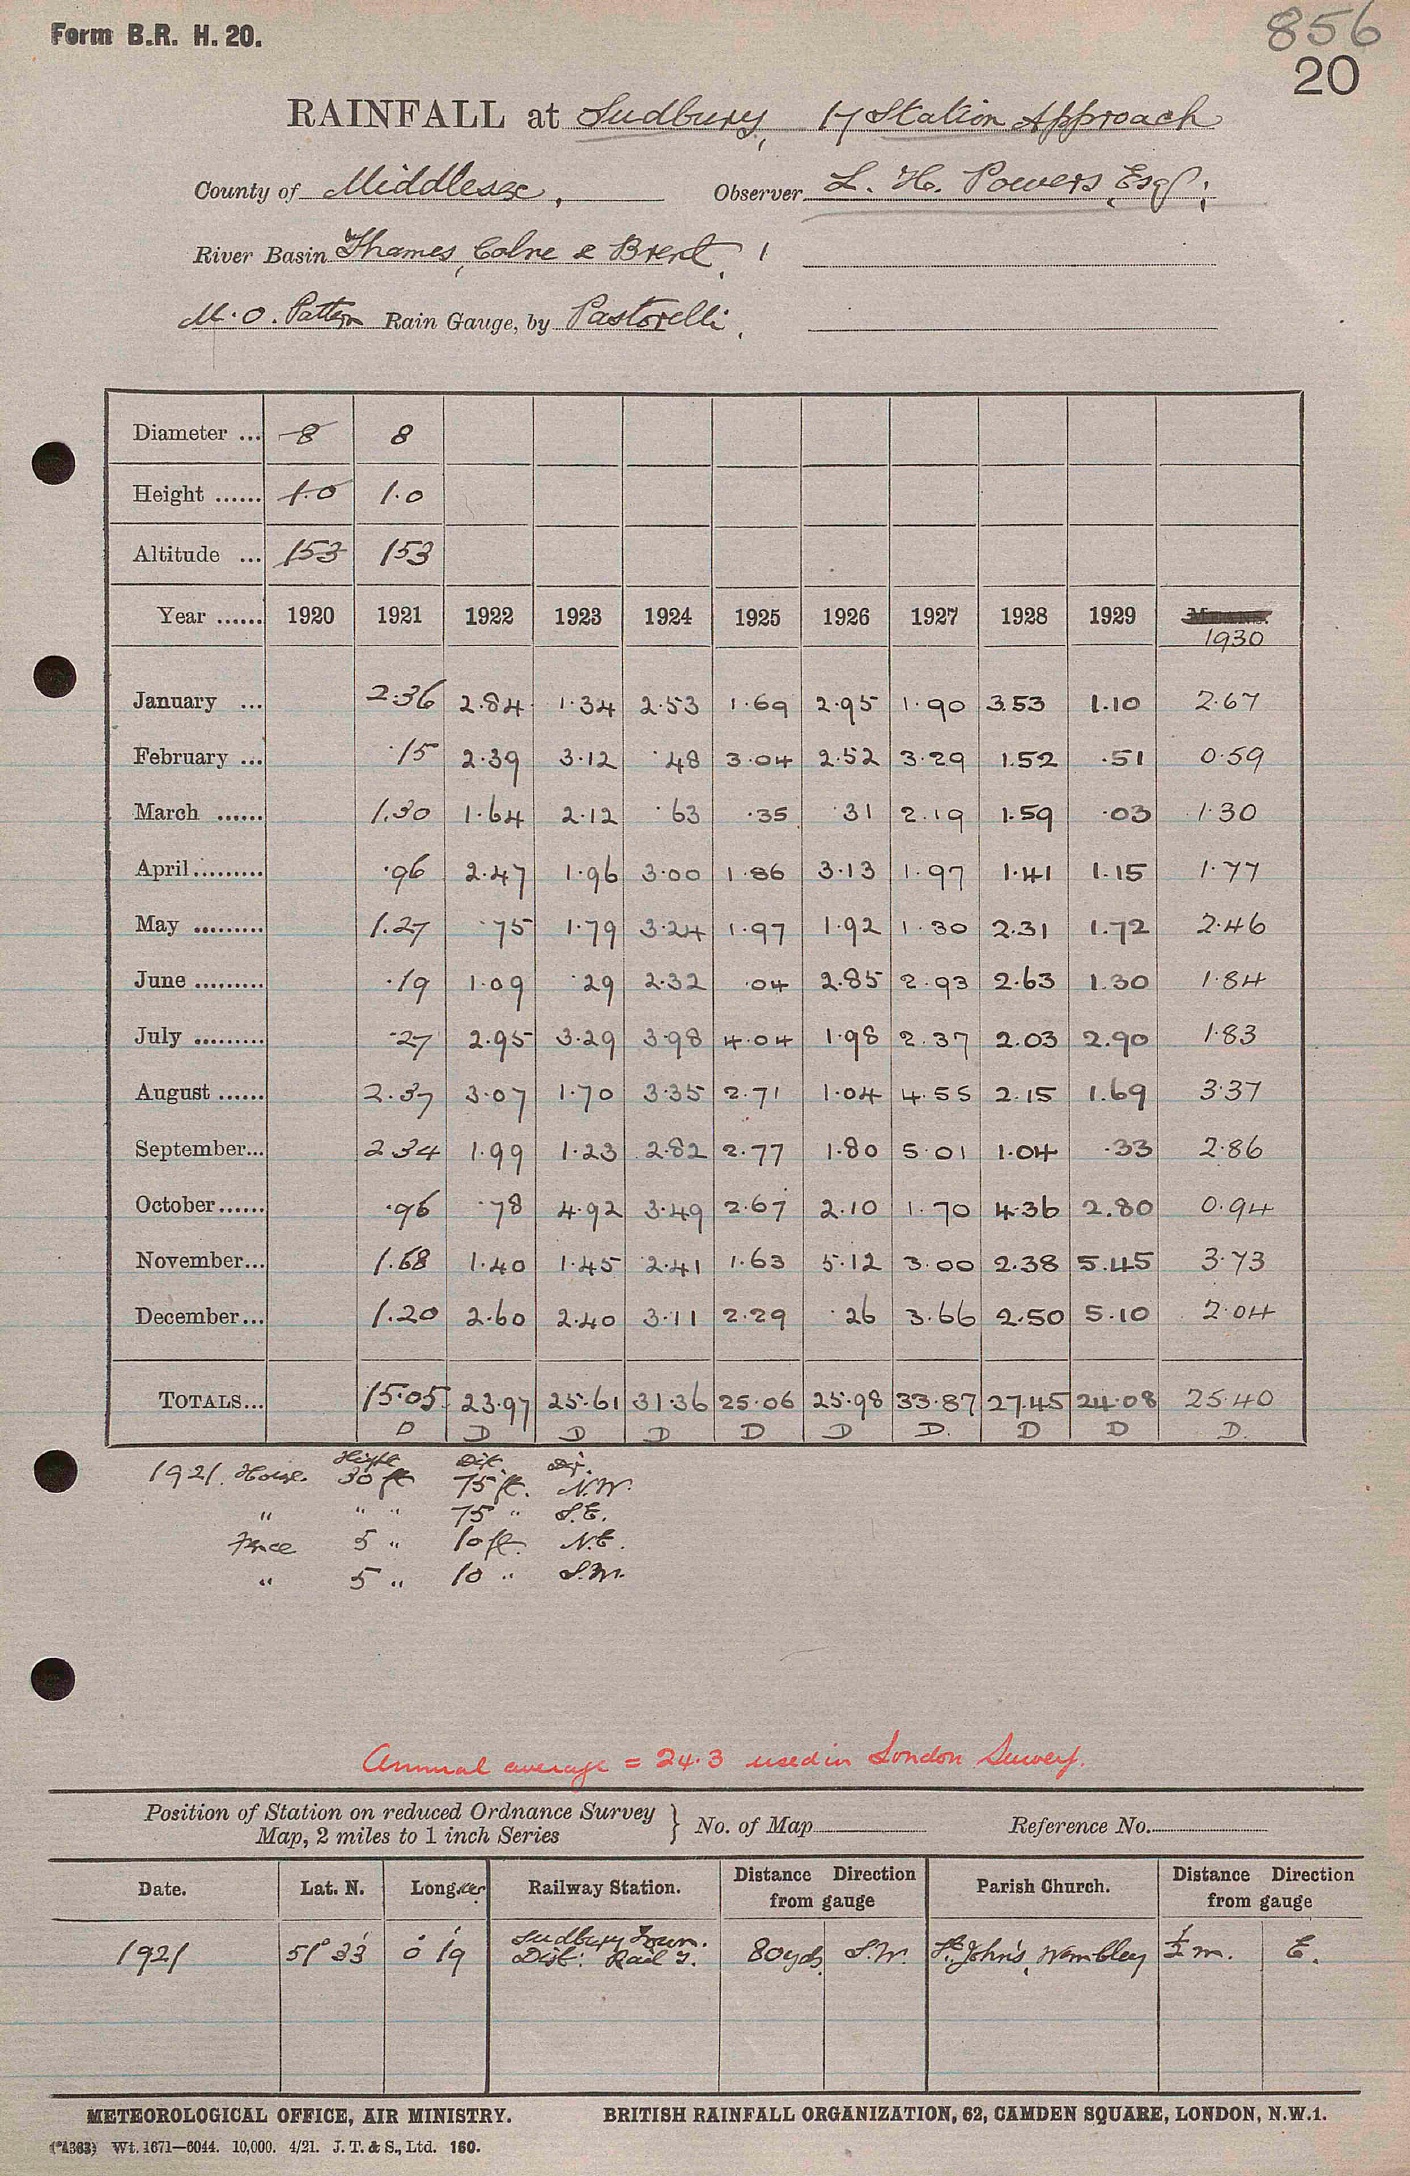 Form B.R. H. 20.
856
20
RAINFALL at Sudbury, 17 Station Approach
County of Middlesex, Observer L. H. Powers, Esq;
River Basin Thames, Colne & Brent, 1
M.O. Pattern Rain Gauge, by Pastorelli,
Diameter ... 8 8
Height ...... 1.0 1.0
Altitude ... 153 153
Year ...... 1920 1921 1922 1923 1924 1925 1926 1927 1928 1929 1930
January ... 2.36 2.84 1.34 2.53 1.69 2.95 1.90 3.53 1.10 2.67
February ... .15 2.39 3.12 .48 3.04 2.52 3.29 1.52 .51 0.59
March ...... 1.30 1.64 2.12 .63 .35 .31 2.19 1.59 .03 1.30
April ......... .96 2.47 1.96 3.00 1.86 3.13 1.97 1.41 1.15 1.77
May ......... 1.27 .75 1.79 3.24 1.97 1.92 1.30 2.31 1.72 2.46
June ......... .19 1.09 .29 2.32 .04 2.85 2.93 2.63 1.30 1.84
July ......... .27 2.95 3.29 3.98 4.04 1.98 2.37 2.03 2.90 1.83
August ...... 2.37 3.07 1.70 3.35 2.71 1.04 4.55 2.15 1.69 3.37
September... 2.34 1.99 1.23 2.82 2.77 1.80 5.01 1.04 .33 2.86
October...... .96 .78 4.92 3.49 2.67 2.10 1.70 4.36 2.80 0.94
November... 1.68 1.40 1.45 2.41 1.63 5.12 3.00 2.38 5.45 3.73
December... 1.20 2.60 2.40 3.11 2.29 .26 3.66 2.50 5.10 2.04
TOTALS... 15.05 23.97 25.61 31.36 25.06 25.98 33.87 27.45 24.08 25.40
D D D D D D D. D D D.
Height Dist. Dir.
1921. House 30 ft 75 ft. N.W.
" " " 75 " S.E.
Fence 5 " 10 ft. N.E.
" 5 " 10 " S.W.
Annual average = 24.3 used in London Survey.
Position of Station on reduced Ordnance Survey Map, 2 miles to 1 inch Series } No. of Map Reference No.
Date. Lat. N. Long. W. Railway Station. Distance Direction from gauge Parish Church. Distance Direction from gauge
1921 51° 33' 0° 19' Sudbury Town. Dist: Rail 80 yds S.W. St. John's, Wembley ½ m. E.
METEOROLOGICAL OFFICE, AIR MINISTRY. BRITISH RAINFALL ORGANIZATION, 62, CAMDEN SQUARE, LONDON, N.W.1.
(*A363) Wt. 1671—6044. 10,000. 4/21. J. T. & S., Ltd. 160.